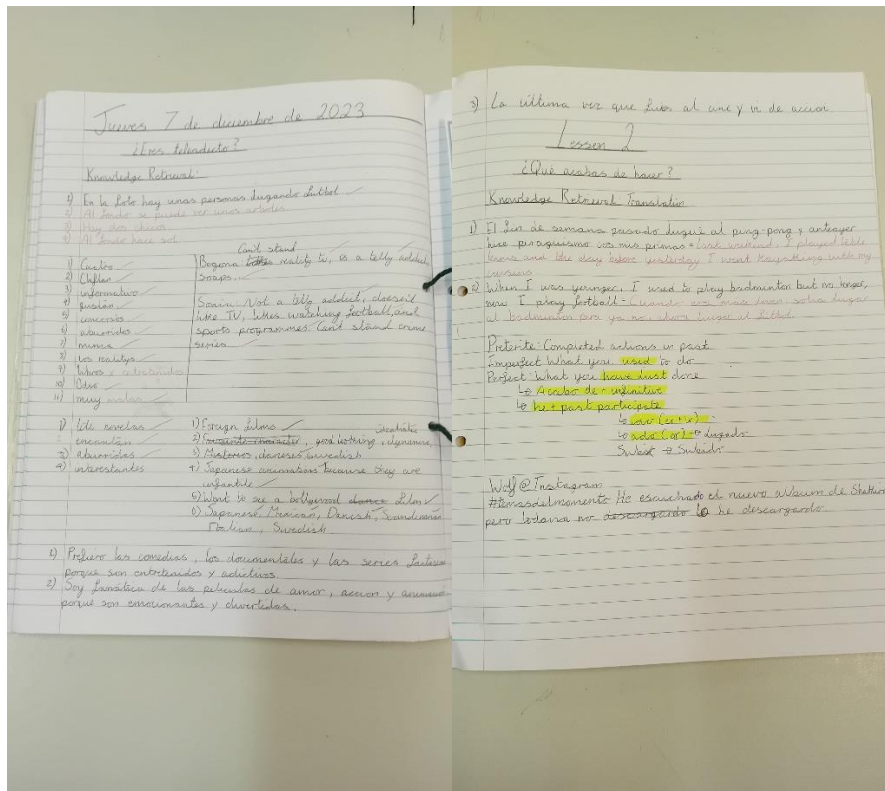 Jueves 7 de diciembre de 2023
¿Eres teleadicto?
Knowledge Retrieval:
1) En la foto hay unas personas jugando fútbol
2) Al fondo se puede ver unos arboles
3) Hay dos chicos
4) Al fondo hace sol
1) Cuotos
2) Chplas
3) informativo
4) gustan
5) concursos
6) aburridos
7) nunca
8) los realitys
9) libros x
10) Otro
11) muy malas
Can't stand
Begona reality tv, is a telly addict
soaps...
Sonia: Not a telly addict, doesn't
like TV, likes watching football, and
sports programmes. Can't stand crime
series
1) tele novelas
2) encantan
3) aburridas
4) interestantes
1) Foreign films
2) Favourite character, good nothing, dynamic,
3) Misterios, daneses, swedish
4) Japanese animations because they are
infantile
5) Want to see a bollywood dance film
6) Japanese, Mexican, Danish, Scandinavian
Italian, Swedish
1) Prefiero las comedias, los documentales y las series
porque son entretenidos y adictivos.
2) Soy fanática de las peliculas de amor, accion y
porque son emocionantes y divertidas.
3) La última vez que fuis al cine y vi de accion
Lesson 2
¿Qué acabas de hacer?
Knowledge Retrieval: Translation
1) El fin de semana pasado jugué al ping-pong y anteayer
hice piraguismo cos mis primas = Last weekend, I played table
tennis and the day before yesterday I went kayaking with my
cousins
2) When I was younger, I used to play badminton but no longer,
now I play football - Cuando era mas joven, solia jugar
al badminton pero ya no, ahora juego al fútbol.
Preterite: Completed actions in past
Imperfect: What you used to do
Perfect: What you have just done
↳ Acabo de + infinitive
↳ he + past participate
↳ (er + ir)
↳ ado (ar) → Jugado
Subir → Subido
Wolf @ Instagram
#temasdelmomento He escuchado el nuevo album de
pero todavia no descargardo lo he descargardo